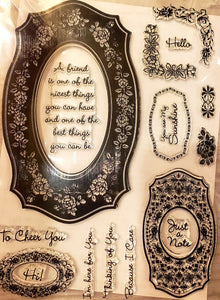 A friend
is one of the
nicest things
you can have
and one of the
best things
you can be.
Hello
You are My
Sunshine
Just
a
Note
To Cheer You
Hi!
I'm here for You
Thinking of You
Because I Care